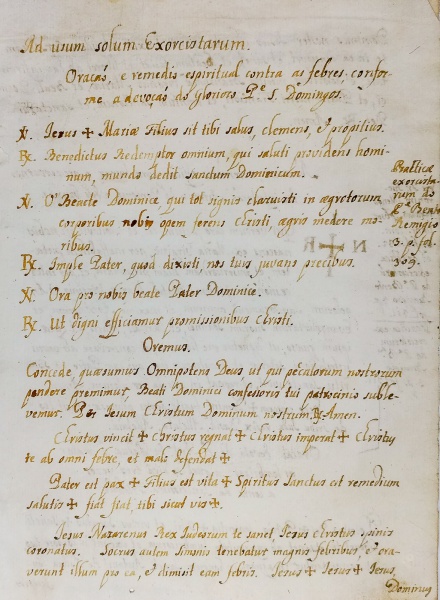 Ad usum solum Exorcistarum.
Oraçaõ, e remedio espiritual contra as febres, confor-
me a devoçaõ do glorioso Pe. S. Domingos.
V. Jesus + Mariæ Filius sit tibi salus, clemens, et propitius.
R. Benedictus Redemptor omnium, qui saluti providens homi-
num, mundo dedit sanctum Dominicum.
V. O Beate Dominice, qui tot signis claruisti in ægrotorum
corporibus nobis opem ferens Christi, ægris medere mo-
ribus.
R. Imple Pater, quod dixisti, nos tuis juvans precibus.
V. Ora pro nobis beate Pater Dominice.
R. Ut digni efficiamur promissionibus Christi.
Oremus.
Concede quæsumus Omnipotens Deus ut qui peccatorum nostrorum
pondere premimur, Beati Dominici confessoris tui patrocinio suble-
vemur. Per Jesum Christum Dominum nostrum. R. Amen.
Christus vincit + Christus regnat + Christus imperat + Christus
te ab omni febre, et malo defendat +
Pater est pax + Filius est vita + Spiritus Sanctus est remedium
salutis + fiat fiat, tibi sicut vis +.
Jesus Nazarenus Rex Judeorum te sanet, Jesus Christus spinis
coronatus. Socrus autem Simonis tenebatur magnis febribus, et ora-
verunt illum pro ea, et dimisit eam febris. Jesus + Jesus + Jesus,
Dominus
Practicæ
exorcista-
rum do
Pe. Bento
Remigio
3. p. fol.
309.